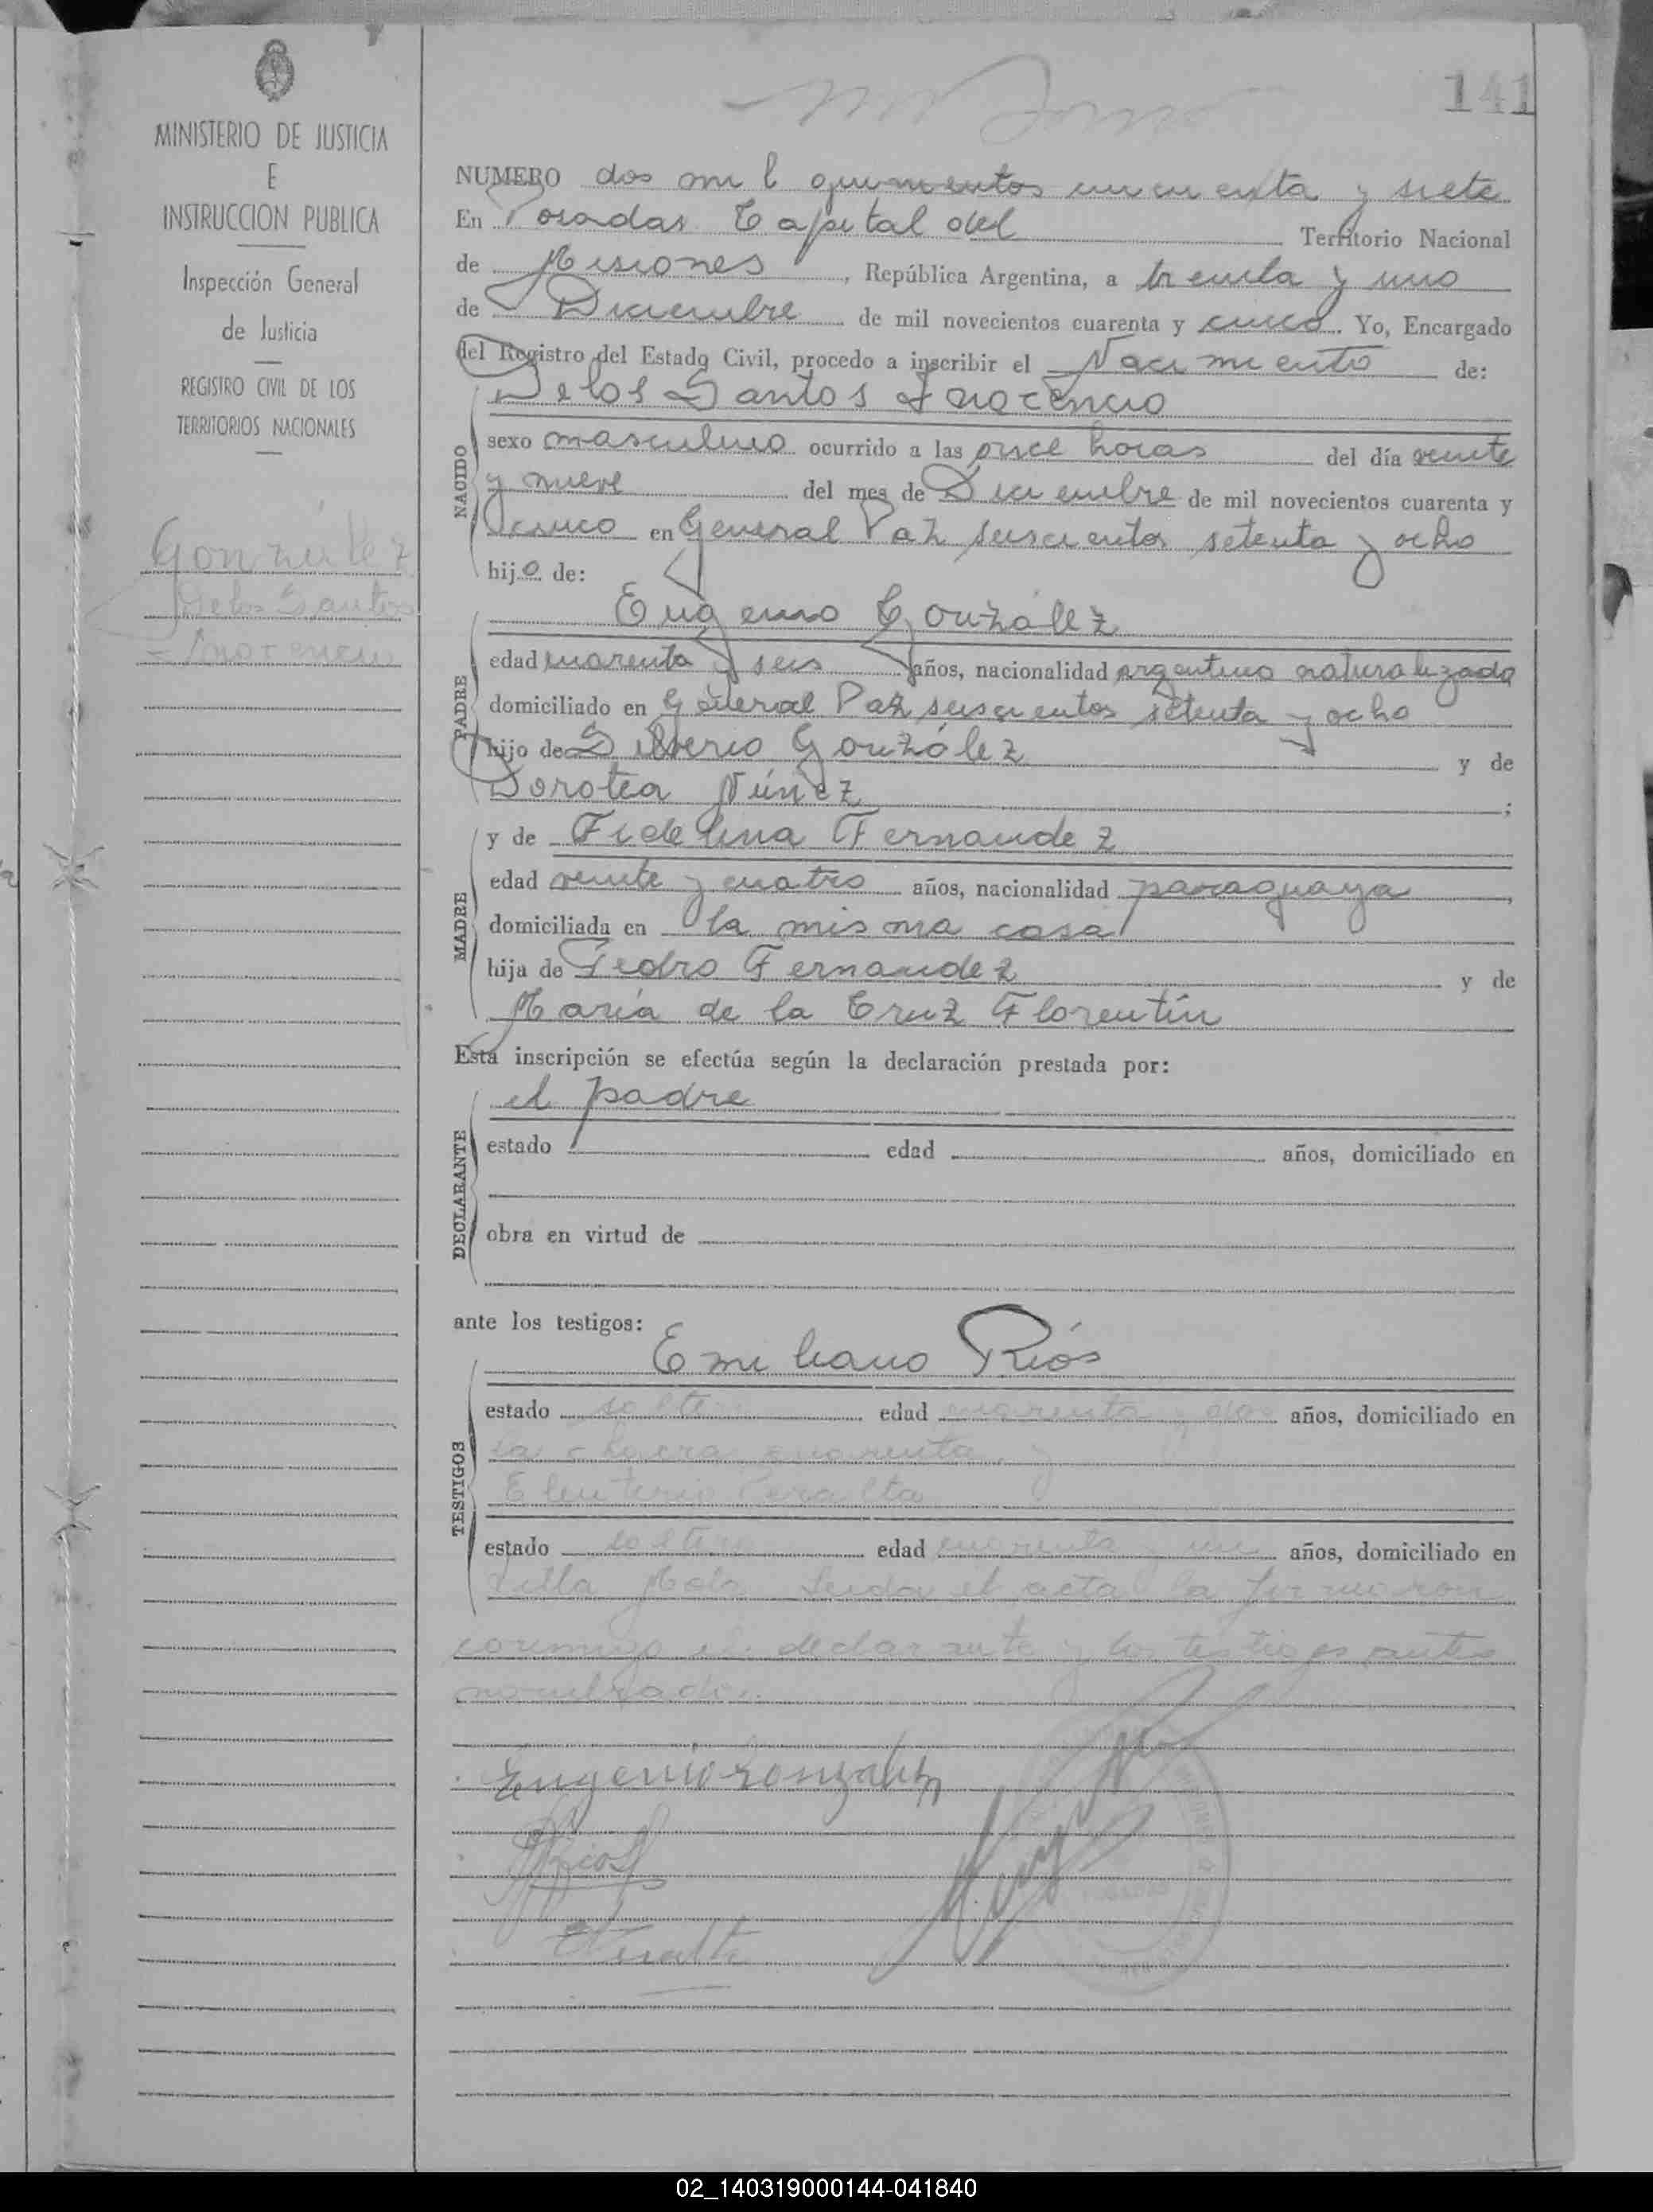 141
MINISTERIO DE JUSTICIA
E
INSTRUCCION PUBLICA
Inspección General
de Justicia
REGISTRO CIVIL DE LOS
TERRITORIOS NACIONALES
González
De los Santos
Inocencio
NUMERO dos mil quinientos cincuenta y siete
En Posadas Capital del Territorio Nacional
de Misiones, República Argentina, a treinta y uno
de Diciembre de mil novecientos cuarenta y cinco. Yo, Encargado
del Registro del Estado Civil, procedo a inscribir el Nacimiento de:
De los Santos Inocencio
NACIDO
sexo masculino ocurrido a las once horas del día veinte
y nueve del mes de Diciembre de mil novecientos cuarenta y
cinco en General Paz seiscientos setenta y ocho
hijo de:
Eugenio González
PADRE
edad cuarenta y seis años, nacionalidad argentino naturalizado
domiciliado en General Paz seiscientos setenta y ocho
hijo de Silverio González y de
Dorotea Núñez;
MADRE
y de Fidelina Fernandez
edad veinte y cuatro años, nacionalidad paraguaya,
domiciliada en la misma casa
hija de Pedro Fernandez y de
María de la Cruz Florentín
Esta inscripción se efectúa según la declaración prestada por:
el padre
DECLARANTE
estado edad años, domiciliado en
obra en virtud de
ante los testigos:
Emiliano Ríos
TESTIGOS
estado soltero edad cuarenta y dos años, domiciliado en
la chacra cuarenta, y
Eleuterio Peralta
estado soltero edad cuarenta y un años, domiciliado en
Villa Mola. Leída el acta la firmaron
conmigo el declarante y los testigos antes
nombrados.
Eugenio Gonzalez
Rios
Peralta
02_140319000144-041840